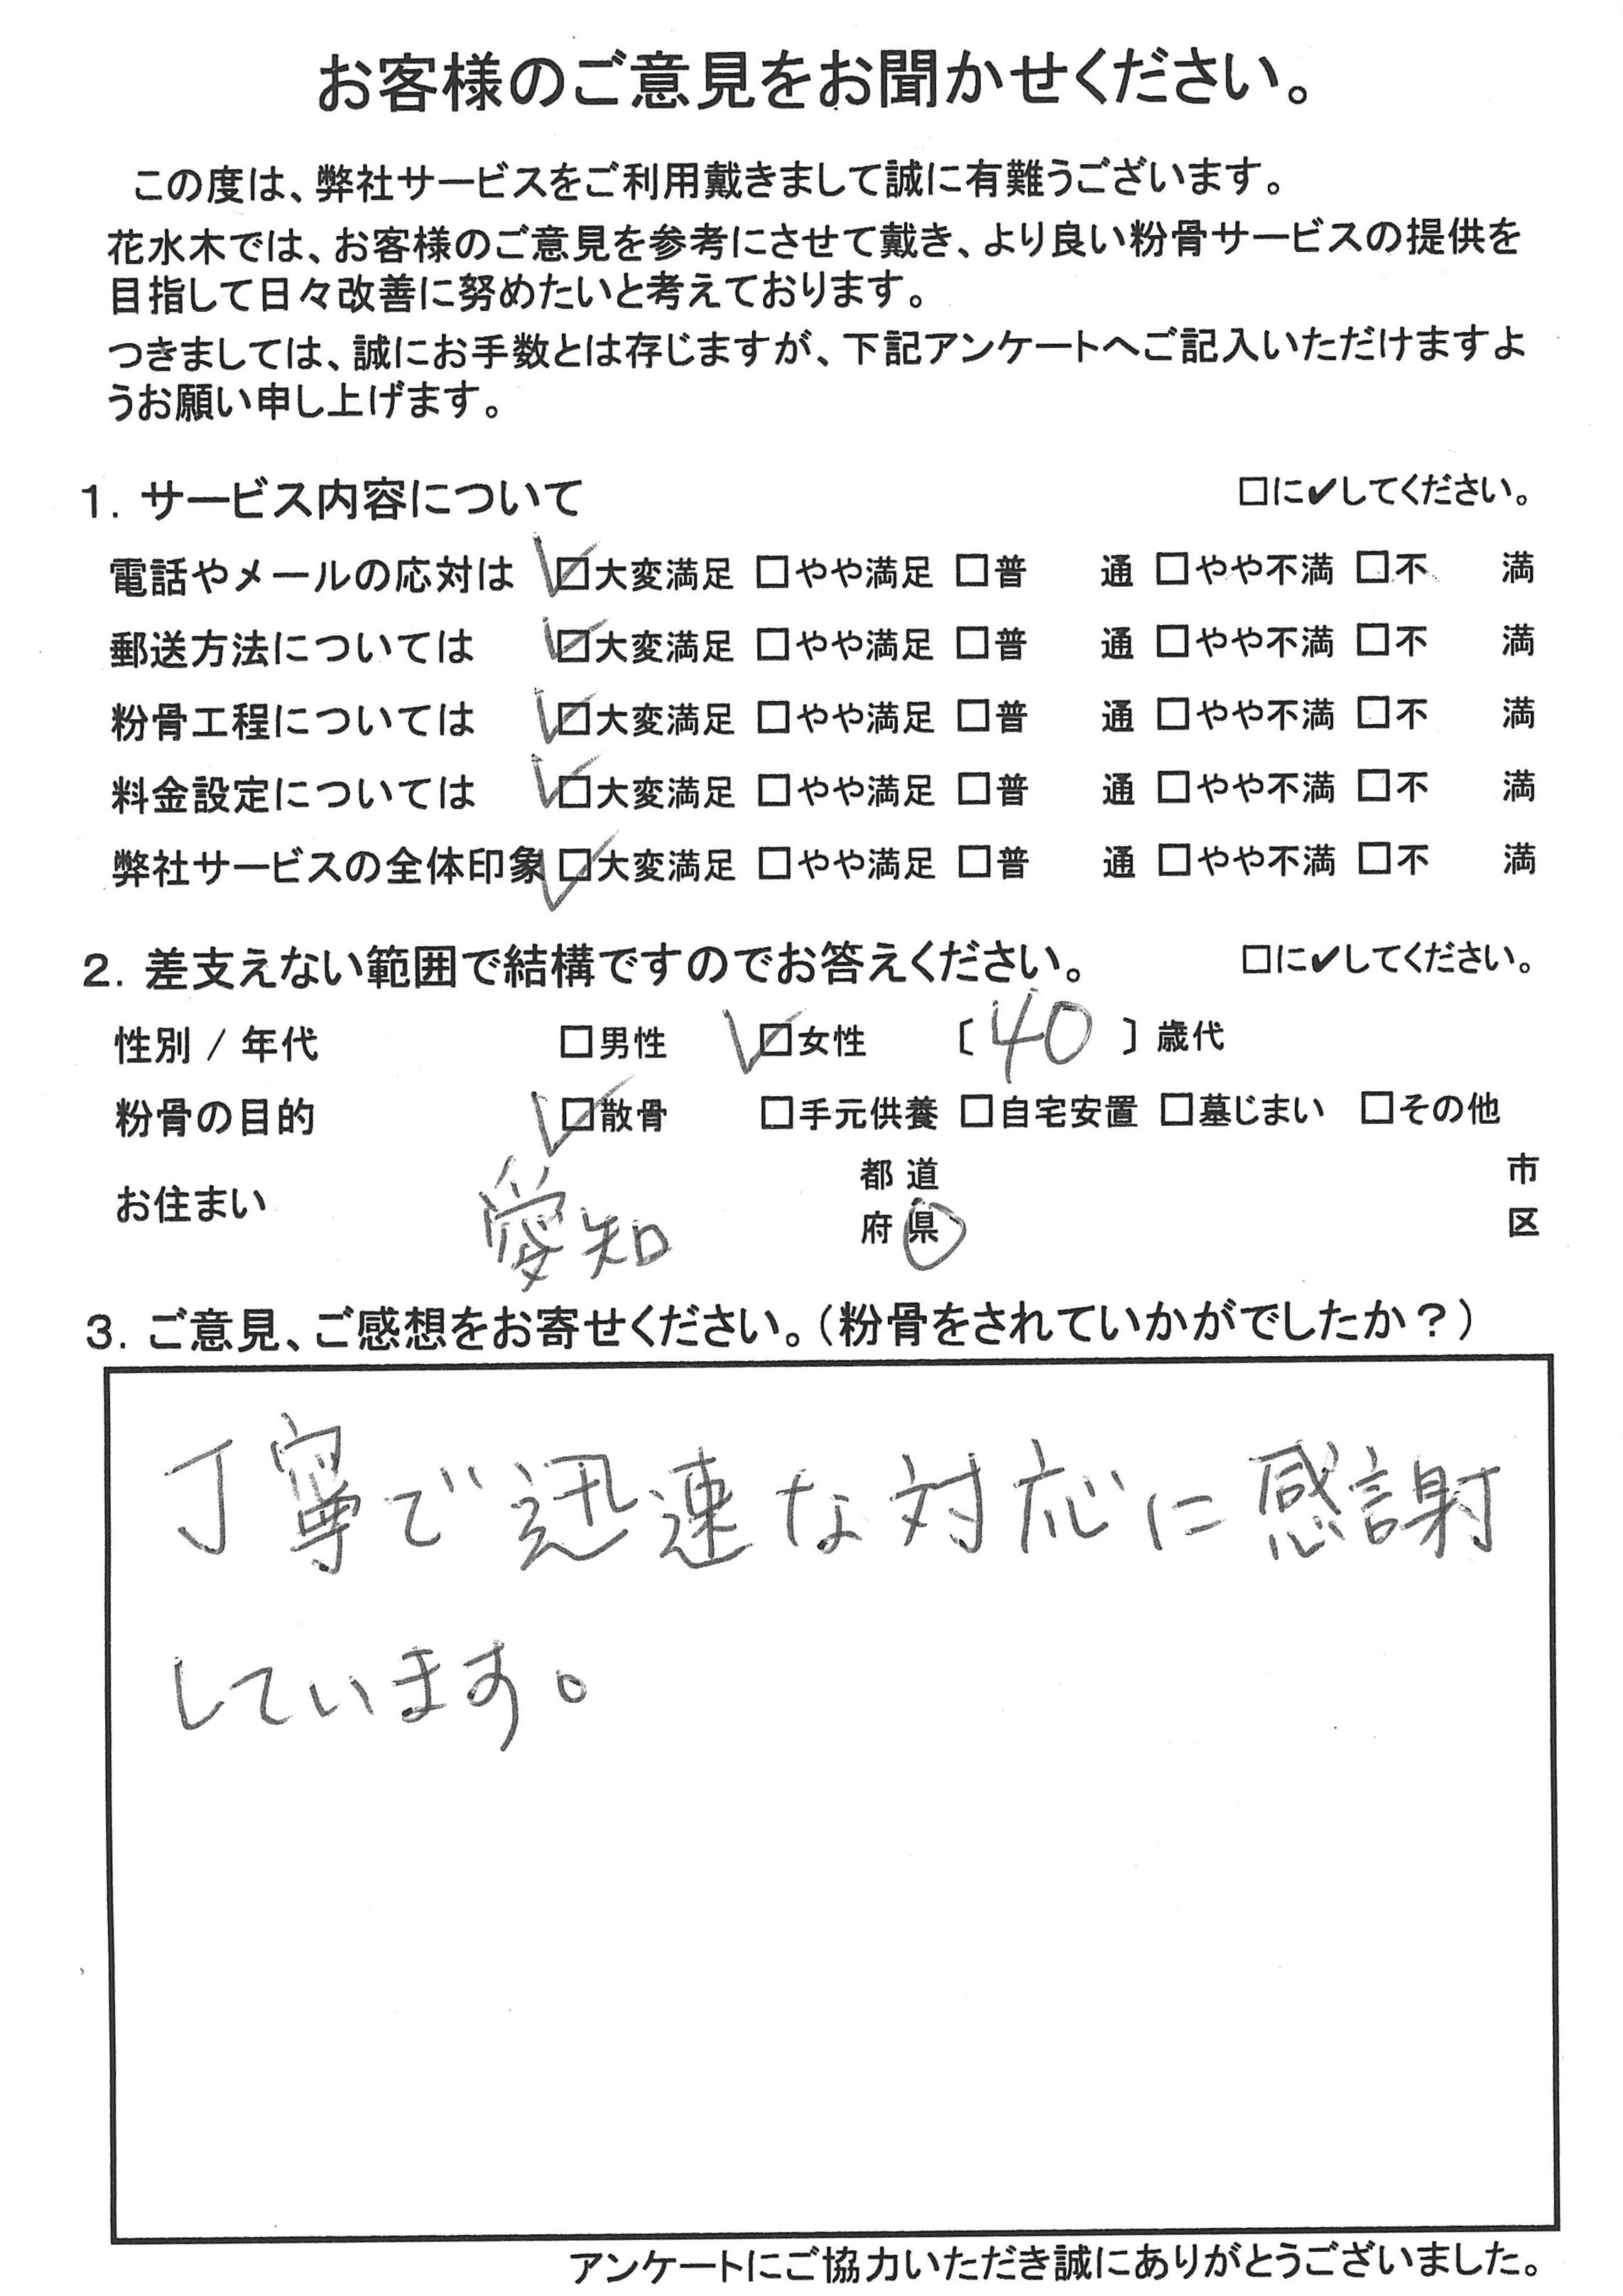 お客様のご意見をお聞かせください。
この度は、弊社サービスをご利用戴きまして誠に有難うございます。
花水木では、お客様のご意見を参考にさせて戴き、より良い粉骨サービスの提供を
目指して日々改善に努めたいと考えております。
つきましては、誠にお手数とは存じますが、下記アンケートへご記入いただけますよ
うお願い申し上げます。
1. サービス内容について □に✔してください。
電話やメールの応対は ☑大変満足 □やや満足 □普 通 □やや不満 □不 満
郵送方法については ☑大変満足 □やや満足 □普 通 □やや不満 □不 満
粉骨工程については ☑大変満足 □やや満足 □普 通 □やや不満 □不 満
料金設定については ☑大変満足 □やや満足 □普 通 □やや不満 □不 満
弊社サービスの全体印象 ☑大変満足 □やや満足 □普 通 □やや不満 □不 満
2. 差支えない範囲で結構ですのでお答えください。 □に✔してください。
性別 / 年代 □男性 ☑女性 〔 40 〕歳代
粉骨の目的 ☑散骨 □手元供養 □自宅安置 □墓じまい □その他
お住まい 愛知 都道府県 市区
3. ご意見、ご感想をお寄せください。（粉骨をされていかがでしたか？）
丁寧で迅速な対応に感謝
しています。
アンケートにご協力いただき誠にありがとうございました。